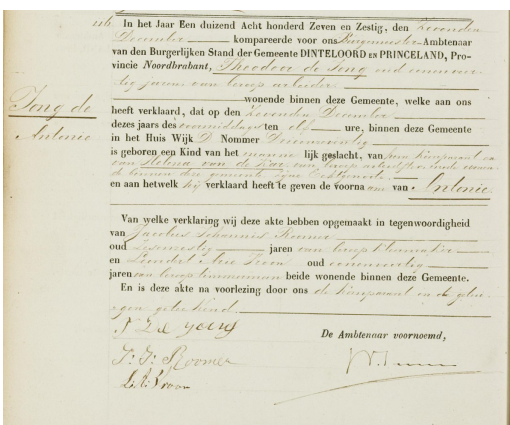 116 In het Jaar Een duizend Acht honderd Zeven en Zestig, den Zevenden
December kompareerde voor ons Burgemeester Ambtenaar
van den Burgerlijken Stand der Gemeente DINTELOORD en PRINCELAND, Pro-
vincie Noordbrabant, Theodoor de Jong oud
tig jaren van beroep arbeider
wonende binnen deze Gemeente, welke aan ons
Jong de
heeft verklaard, dat op den Zevenden December
Antonie
dezes jaars des voormiddags ten elf ure, binnen deze Gemeente
in het Huis Wijk D Nommer
is geboren een Kind van het mannelijk geslacht, van
van Helena van de van beroep
binnen deze gemeente zijne Echtgenoote
en aan hetwelk hij verklaard heeft te geven de voornaam van Antonie.
Van welke verklaring wij deze akte hebben opgemaakt in tegenwoordigheid
van Jacobus Johannis Roomer
oud jaren van beroep
en Leendert Arie Vroon oud
jaren van beroep beide wonende binnen deze Gemeente.
En is deze akte na voorlezing door ons de komparant en de getui-
gen geteekend.
T De Jong
De Ambtenaar voornoemd,
J: J: Roomer
L: A: Vroon